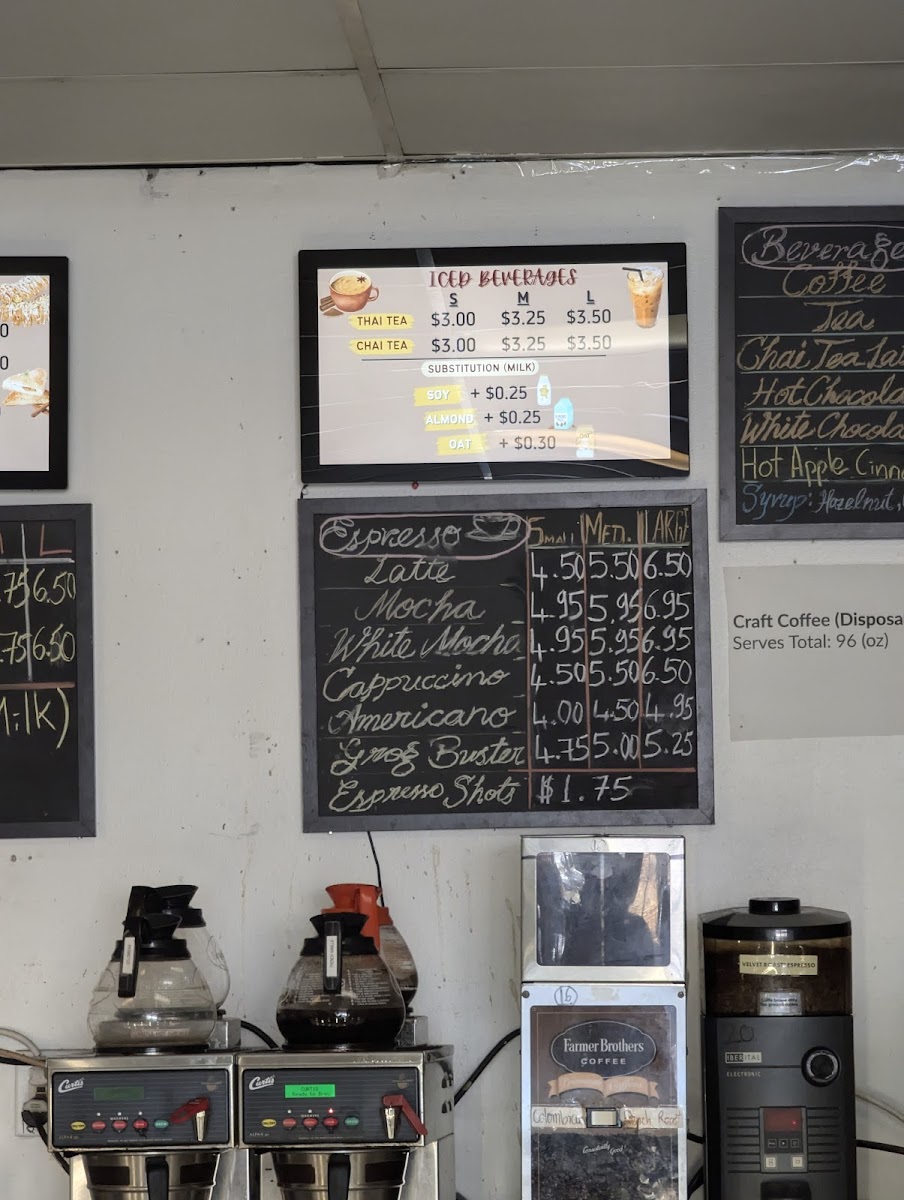 ICED BEVERAGES
S M L
THAI TEA $3.00 $3.25 $3.50
CHAI TEA $3.00 $3.25 $3.50
SUBSTITUTION (MILK)
SOY + $0.25
ALMOND + $0.25
OAT + $0.30
Espresso Small Med. LARGE
Latte 4.50 5.50 6.50
Mocha 4.95 5.95 6.95
White Mocha 4.95 5.95 6.95
Cappuccino 4.50 5.50 6.50
Americano 4.00 4.50 4.95
Grog Buster 4.75 5.00 5.25
Espresso Shots $1.75
Beverage
Coffee
Tea
Chai Tea Lat
Hot Chocola
White Chocola
Hot Apple Cinn
Syrup: Hazelnut,
Craft Coffee (Disposa
Serves Total: 96 (oz)
L
.75 6.50
.75 6.50
Milk)
0
0
Curtis
Curtis
CURTIS
Ready to Brew
16
Farmer Brothers
COFFEE
Colombia
French Roast
VELVET ROAST ESPRESSO
IBERITAL
ELECTRONIC